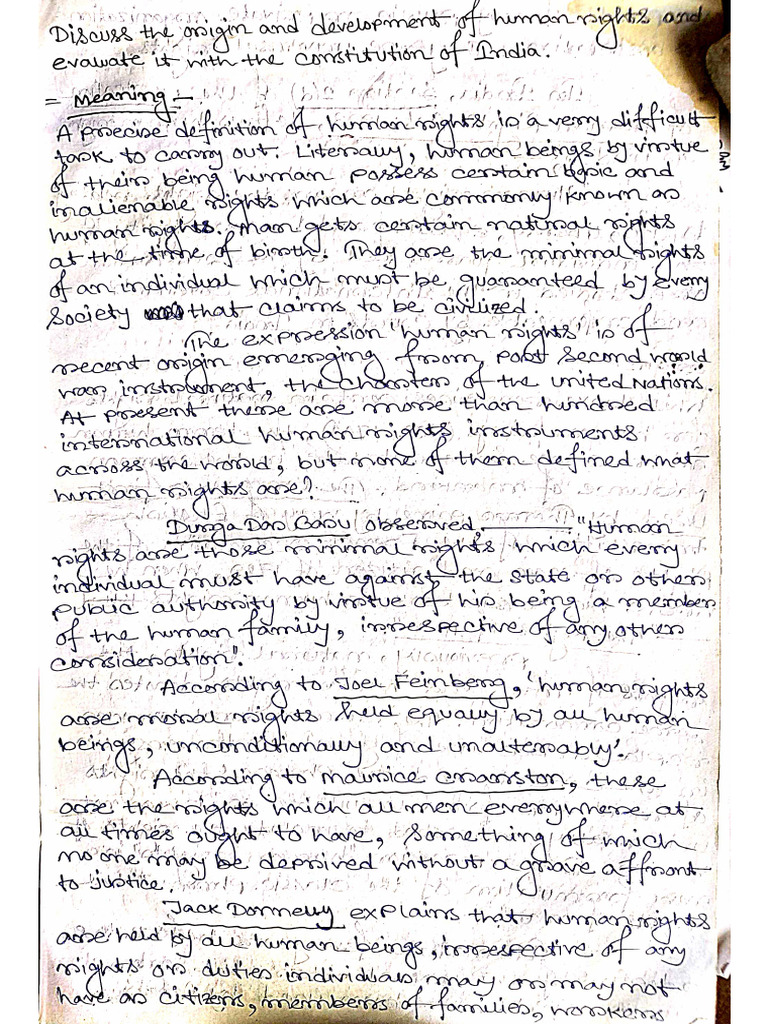 Discuss the origin and development of human rights and
evaluate it with the constitution of India.
= Meaning -
A precise definition of human rights is a very difficult
task to carry out. Literally, human beings by virtue
of their being human possess certain basic and
inalienable rights which are commonly known as
human rights. Man gets certain natural rights
at the time of birth. They are the minimal rights
of an individual which must be guaranteed by every
society that claims to be civilized.
The expression 'human rights' is of
recent origin emerging from post second world
war instrument, the charter of the united Nations.
At present there are more than hundred
international human rights instruments
across the world, but none of them defined what
human rights are?
Durga Das Basu observed, "Human
rights are those minimal rights which every
individual must have against the state or other
public authority by virtue of his being a member
of the human family, irrespective of any other
consideration".
According to Joel Feinberg, 'human rights
are moral rights held equally by all human
beings, unconditionally and unalterably'.
According to Maurice Cranston, these
are the rights which all men everywhere at
all times ought to have, something of which
no one may be deprived without a grave affront
to justice.
Jack Donnelly explains that human rights
are held by all human beings, irrespective of any
rights or duties individuals may or may not
have as citizens, members of families, workers